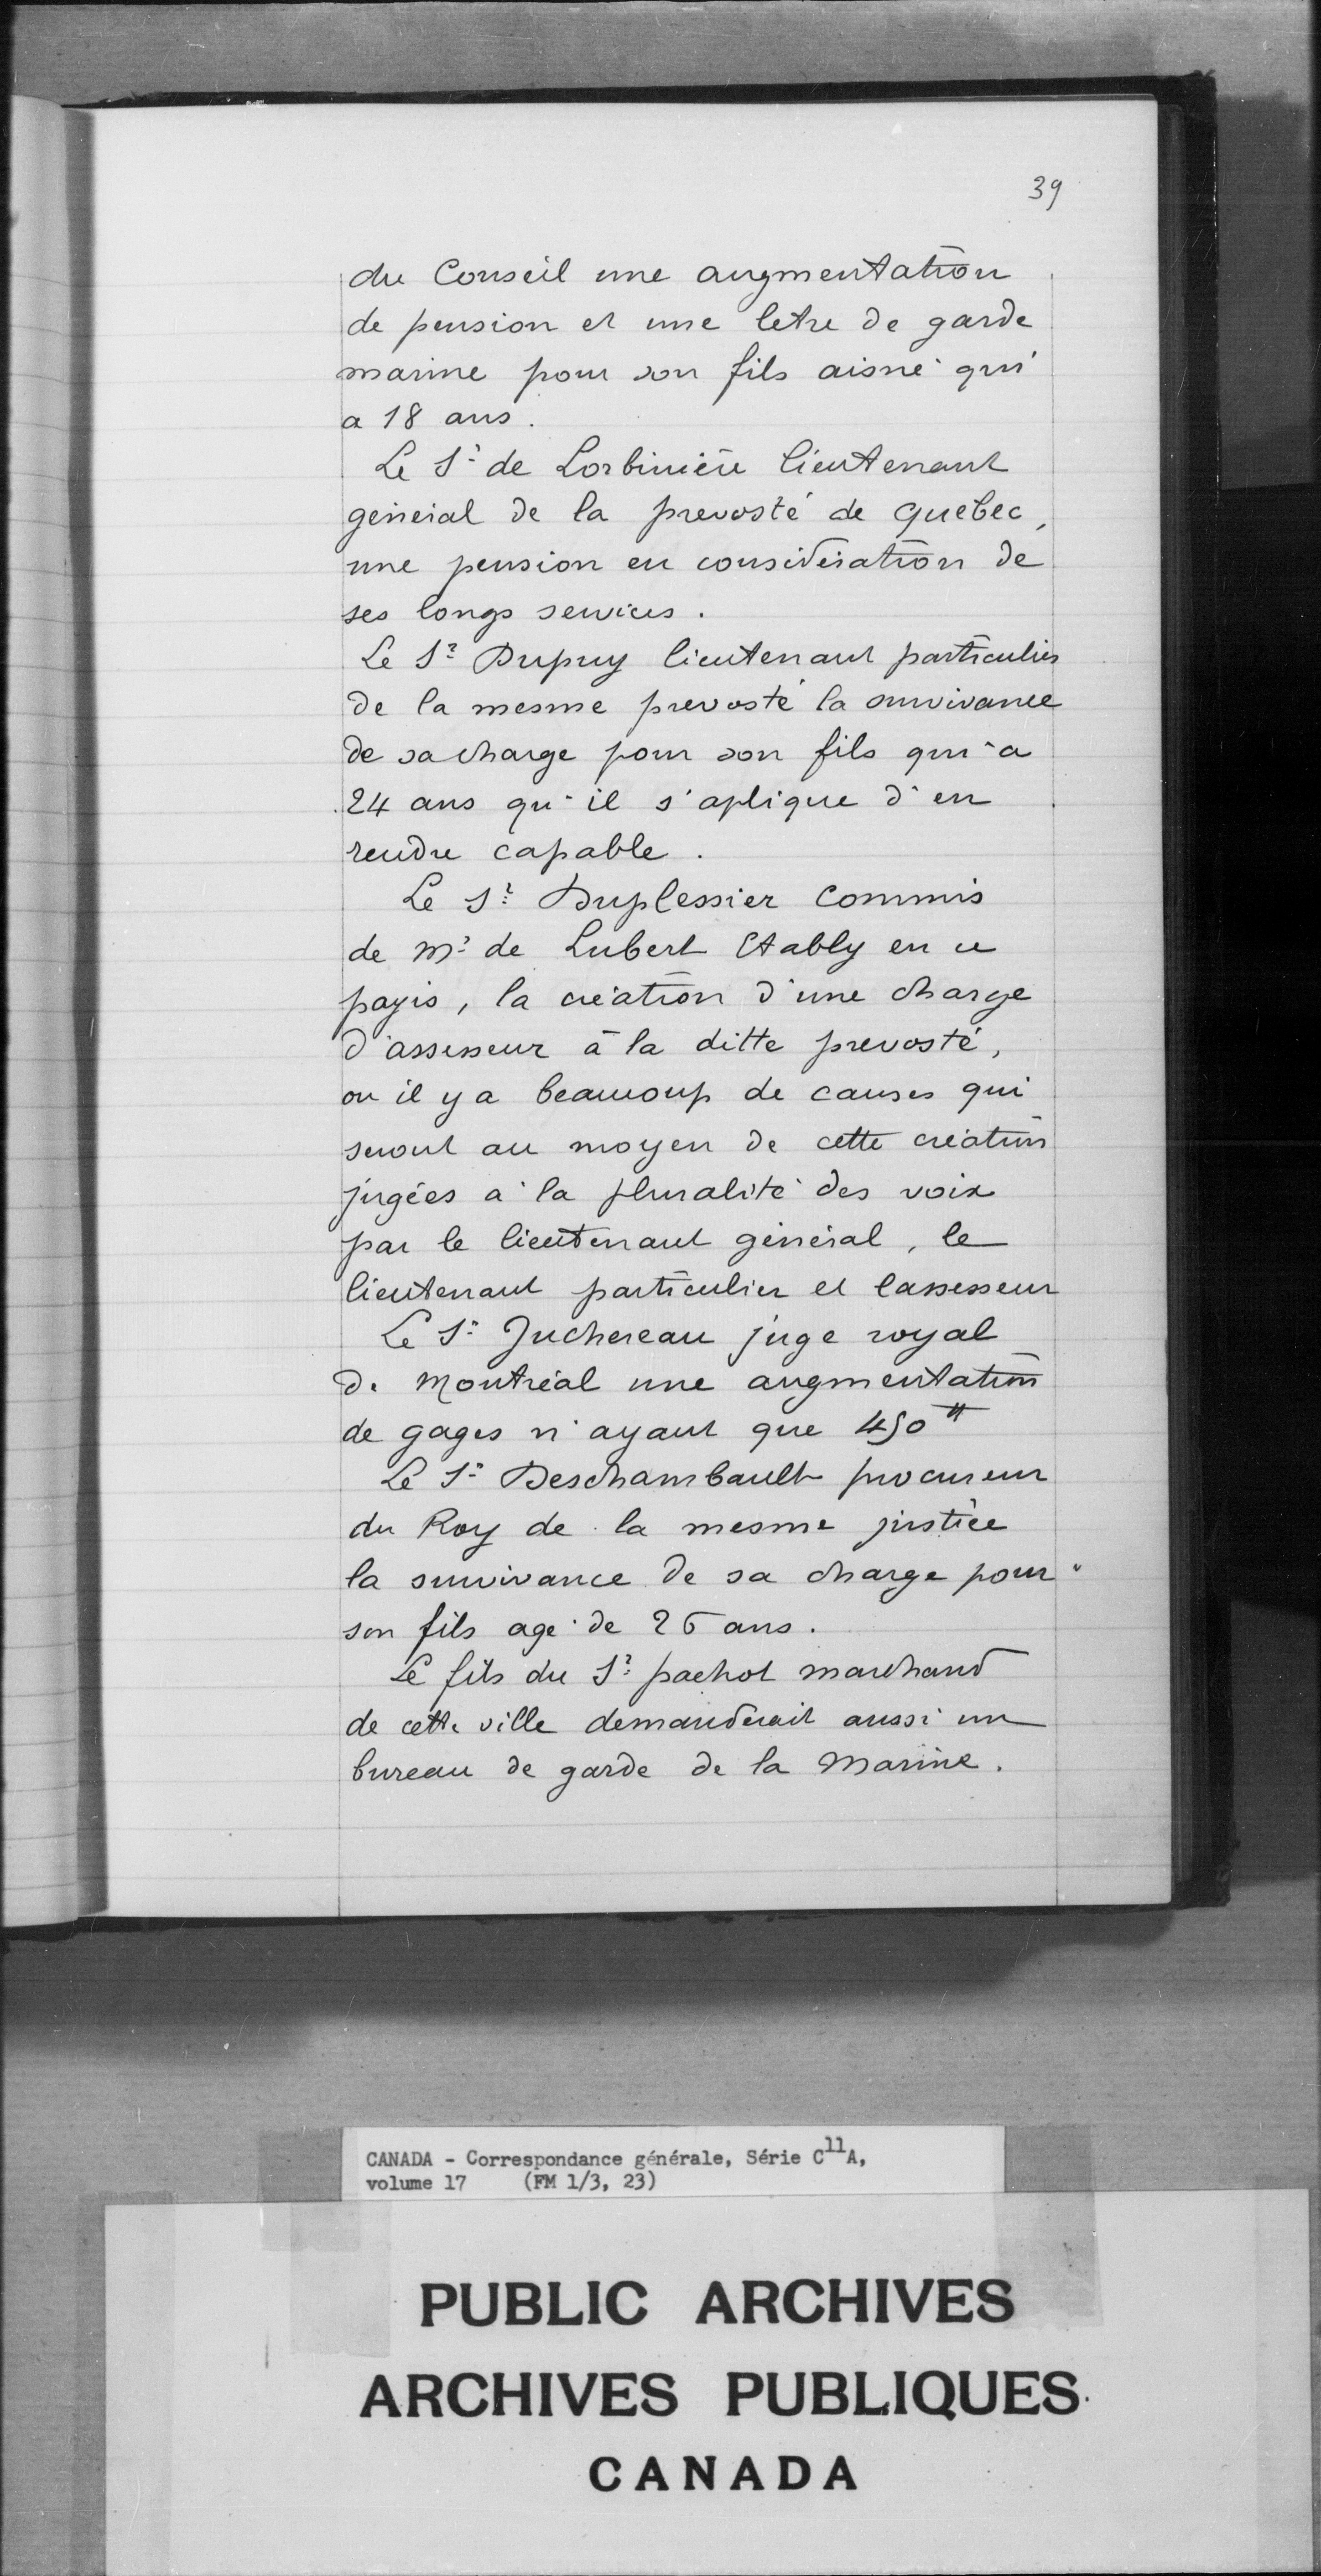 39
du Conseil une augmentation
de pension et une letre de garde
marine pour son fils aisné qui
a 18 ans.
Le Sr de Lorbinière lieutenant
général de la prevosté de Quebec,
une pension en considération de
ses longs services.
Le Sr Dupuy lieutenant particulier
de la mesme prevosté la survivance
de sa charge pour son fils qui a
24 ans qu'il s'aplique d'en
rendre capable.
Le Sr Duplessier Commis
de Mr de Lubert Etably en ce
payis, la création d'une charge
d'assesseur à la ditte prevosté,
ou il y a beaucoup de causes qui
seront au moyen de cette création
jugées a la pluralité des voix
par le lieutenant général, le
lieutenant particulier et lassesseur
Le Sr Juchereau juge royal
de Montréal une augmentation
de gages n'ayant que 450 ₶
Le Sr Deschambault procureur
du Roy de la mesme justice
la survivance de sa charge pour
son fils agé de 25 ans.
Le fils du Sr pachot marchand
de cette ville demanderait aussi un
bureau de garde de la Marine.
CANADA - Correspondance générale, Série C11A,
volume 17 (FM 1/3, 23)
PUBLIC ARCHIVES
ARCHIVES PUBLIQUES
CANADA